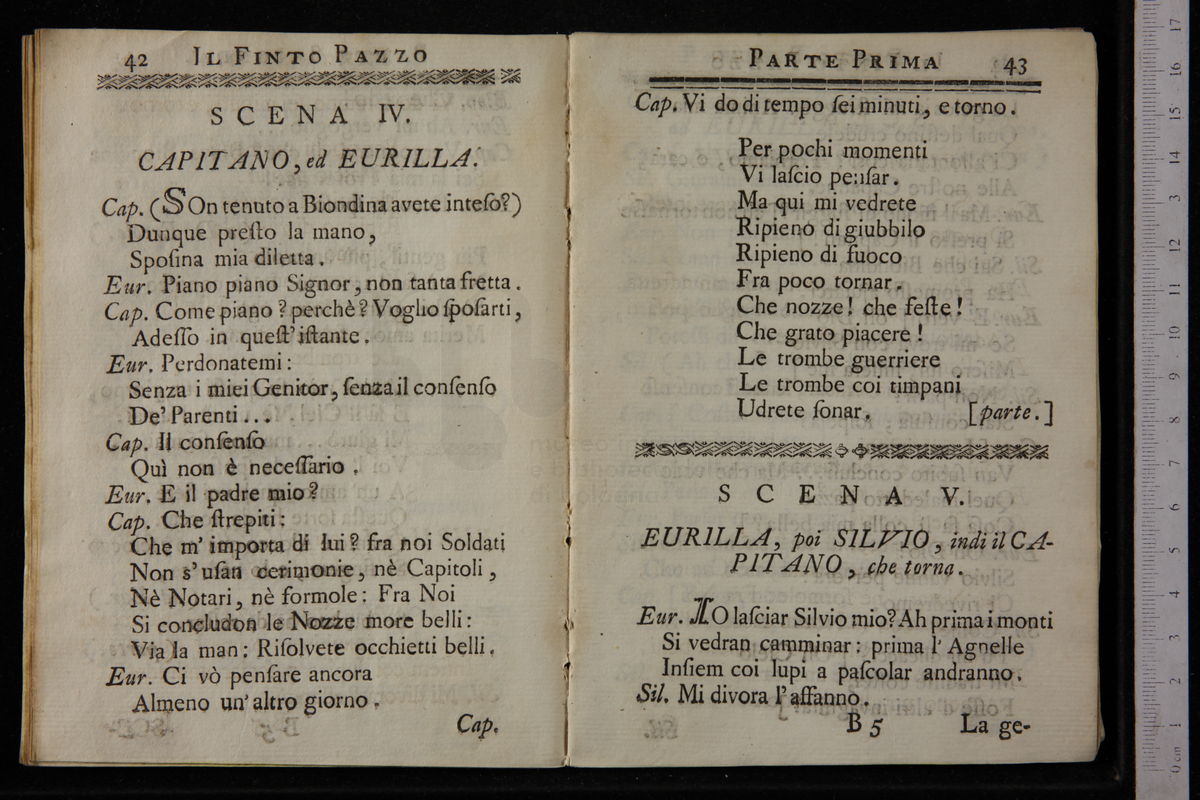 42 IL FINTO PAZZO
SCENA IV.
CAPITANO, ed EURILLA.
Cap. (SOn tenuto a Biondina avete inteſo?)
Dunque preſto la mano,
Spoſina mia diletta.
Eur. Piano piano Signor, non tanta fretta.
Cap. Come piano? perchè? Voglio ſpoſarti,
Adeſſo in queſt' iſtante.
Eur. Perdonatemi:
Senza i miei Genitor, ſenza il conſenſo
De' Parenti...
Cap. Il conſenſo
Quì non è neceſſario.
Eur. E il padre mio?
Cap. Che ſtrepiti:
Che m' importa di lui? fra noi Soldati
Non s' uſan cerimonie, nè Capitoli,
Nè Notari, nè formole: Fra Noi
Si concludon le Nozze more belli:
Via la man: Riſolvete occhietti belli.
Eur. Ci vò penſare ancora
Almeno un' altro giorno.
Cap.
PARTE PRIMA 43
Cap. Vi do di tempo ſei minuti, e torno.
Per pochi momenti
Vi laſcio penſar.
Ma qui mi vedrete
Ripieno di giubbilo
Ripieno di fuoco
Fra poco tornar.
Che nozze! che feſte!
Che grato piacere!
Le trombe guerriere
Le trombe coi timpani
Udrete ſonar. [parte.]
SCENA V.
EURILLA, poi SILVIO, indi il CA-
PITANO, che torna.
Eur. IO laſciar Silvio mio? Ah prima i monti
Si vedran camminar: prima l' Agnelle
Inſiem coi lupi a paſcolar andranno.
Sil. Mi divora l' affanno.
B 5 La ge-